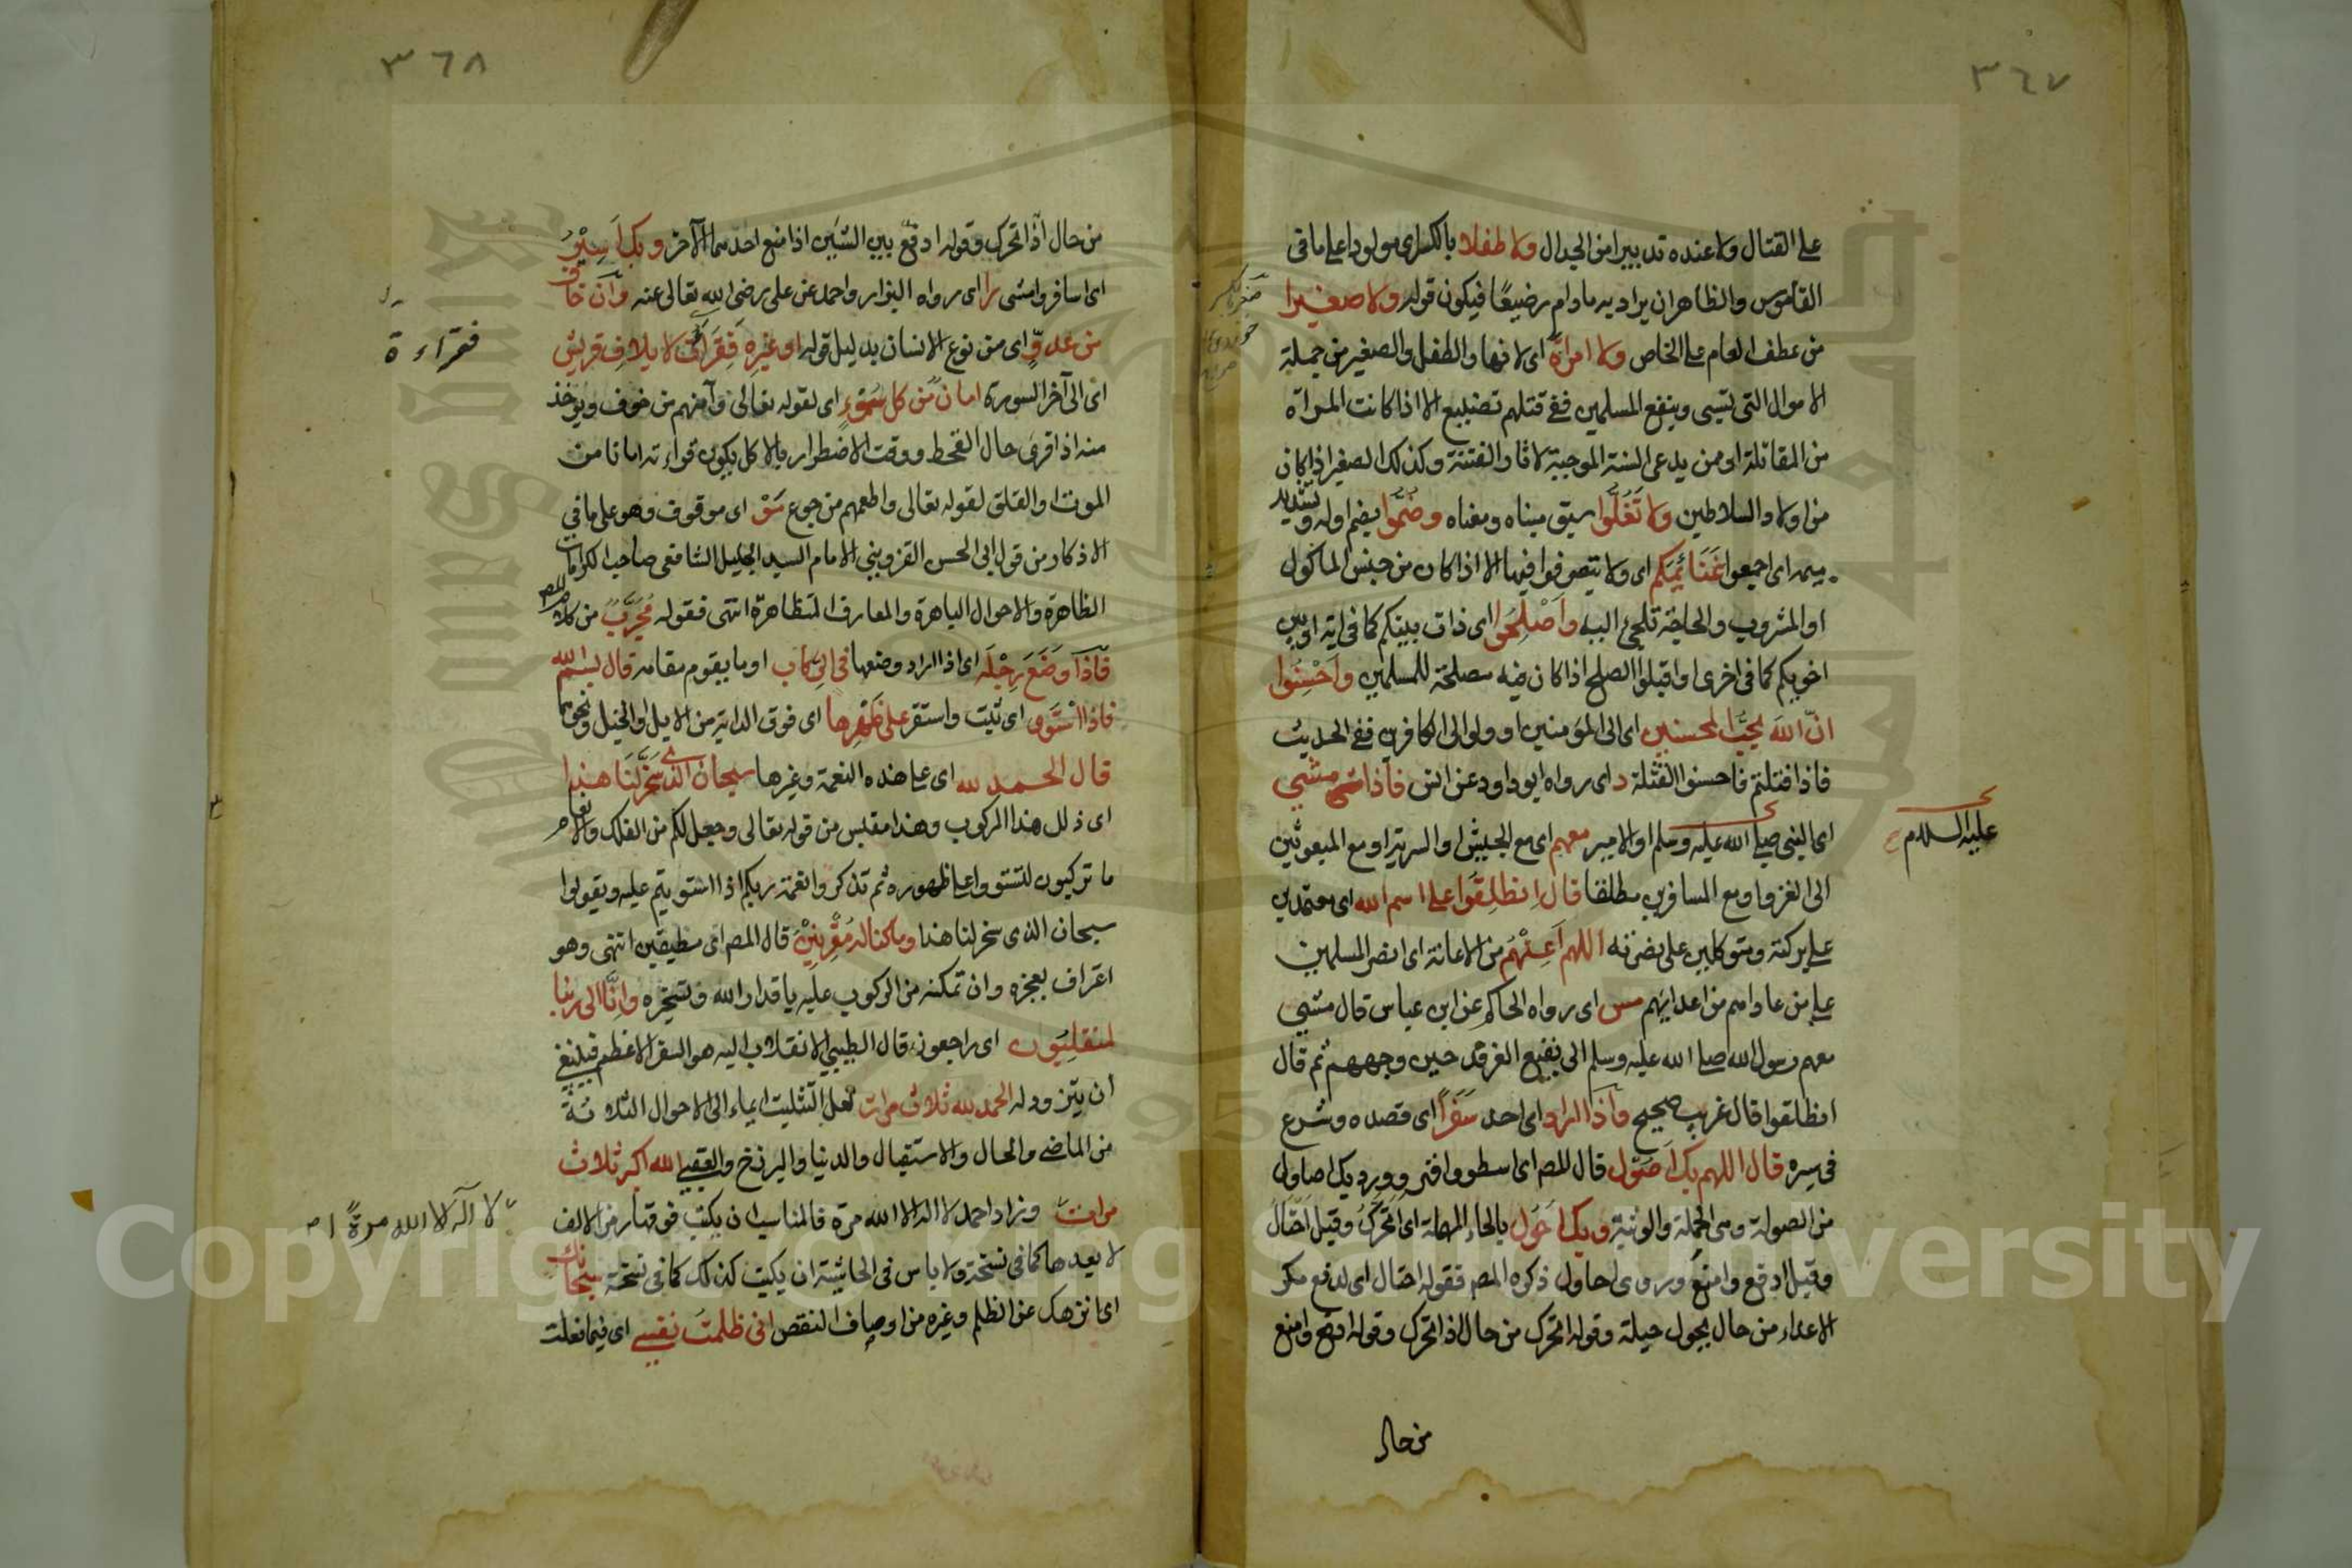 ٣٦٧
على القتال ولا عنده تدبير امن الجدال ولا طفلا بالكسر اى مولودا على ما فى
القاموس والظاهر ان يراد به ما دام رضيعًا فيكون قوله ولا صغيرا
من عطف العام على الخاص ولا امرأة اى لانها والطفل والصغير من جملة
الاموال التى تسبى وينفع المسلمين ففى قتلهم تضييع الا اذا كانت المرأة
من المقاتلة او من يدعى السنة الموجبة لاثار الفتنة وكذلك الصغير اذا كان
من اولاد السلاطين ولا تَغُلُّوا سبق مبناه ومعناه وضُمُّوا بضم اوله وتشديد
ميمه اى اجمعوا غَنَائِمَكم اى ولا تتصرفوا فيها الا اذا كان من جنس الماكول
او المشروب والحاجة تلجئ اليه وأَصْلِحُوا اى ذات بينكم كما فى اية او بين
اخويكم كما فى اخرى او اقبلوا الصلح اذا كان فيه مصلحة للمسلمين وأَحْسِنُوا
انّ الله يحبّ المحسنين اى الى المؤمنين او ولو الى الكافرين ففى الحديث
فاذا قتلتم فاحسنوا القتلة د اى رواه ابو داود عن انس فاذا مشى
اى النبى صلى الله عليه وسلم او الامير معهم اى مع الجيش او السرية او مع المبعوثين
عليه السلام
الى الغزو او مع المسافرين مطلقا قال انطلِقُوا على اسم الله اى معتمدين
على بركته ومتوكلين على نصرته اللهم أَعِنْهُم من الاعانة اى انصر المسلمين
على من عاداهم من اعدائهم مس اى رواه الحاكم عن ابن عباس قال مشى
معهم رسول الله صلى الله عليه وسلم الى بقيع الغرقد حين وجههم ثم قال
انطلقوا قال غريب صحيح واذا اراد اى احد سَفَرًا اى قصده وشرع
فى سيره قال اللهم بك أَصُول قال المص اى اسطو واقهر وورد بك اصاول
من الصولة وهى الحملة والوثبة وبك أحُول بالحاء المهملة اى اتحرّك وقيل احتال
وقيل ادفع وامنع وروى احاول ذكره المص فقوله احتال اى لدفع مكر
الاعداء من حال يحول حيلة وقوله اتحرك من حال اذا تحرك وقوله ادفع وامنع
من حال
٣٦٨
من حال اذا تحرك وقوله ادفع بين الشيئين اذا منع احدهما الآخر وبك أَسِيْرُ
اى اسافر وامشى را اى رواه البزار واحمد عن على رضى الله تعالى عنه وان خاف
من عدوّ اى من نوع الانسان بدليل قوله او غيره فَقِرَأتُ لايلاف قريش
فقراءة
اى الى آخر السورة امان من كل سُوْءٍ اى لقوله تعالى وآمنهم من خوف ويؤخذ
منه اذا قرئ حال القحط ووقت الاضطرار بالاكل يكون قراءته امانا من
الموت والقلق لقوله تعالى واطعمهم من جوع مَوْ اى موقوف وهو على ما فى
الاذكار من قول ابى الحسن القزوينى الامام السيد الجليل الشافعى صاحب الكرامات
الظاهرة والاحوال الباهرة والمعارف المتظاهرة انتهى فقوله مُجَرَّبٌ من كلام المص
فاذا وَضَعَ رِجْلَه اى اذا اراد وضعها فى الرِكاب او ما يقوم مقامه قال بسم الله
فاذا اسْتَوى اى ثبت واستقر على ظَهْرِها اى فوق الدابة من الابل او الخيل ونحوهما
قال الحمد لله اى على هذه النعمة وغيرها سبحان الذى سَخَّرَلَنَا هذا
اى ذلل هذا المركوب وهذا مقتبس من قوله تعالى وجعل لكم من الفلك والانعام
ما تركبون لتستووا على ظهوره ثم تذكروا نعمة ربكم اذا استويتم عليه وتقولوا
سبحان الذى سخر لنا هذا وما كنا له مُقْرِنِيْنَ قال المص اى مطيقين انتهى وهو
اعتراف بعجزه وان تمكنه من الركوب عليه باقدار الله وتسخيره وانّا الى ربنا
لمنقلِبُون اى راجعون قال الطيبى الانقلاب اليه هو السفر الاعظم فينبغى
ان يتزود له الحمد لله ثلاث مرات لعل التثليث ايماء الى الاحوال الثلاثة
من الماضى والحال والاستقبال والدنيا والبرزخ والعقبى الله اكبر ثلاث
مرات وزاد احمد لا اله الا الله مرة فالمناسب ان يكتب فوقها رمز الالف
لا اله الا الله مرةً ا ص
لا بعدها كما فى نسخة ولا باس فى الحاشية ان يكتب كذلك كما فى نسخة سبحانك
اى انزهك عن الظلم وغيره من اوصاف النقص انى ظلمتُ نفسى اى فيما فعلت
Copyright to King Saud University